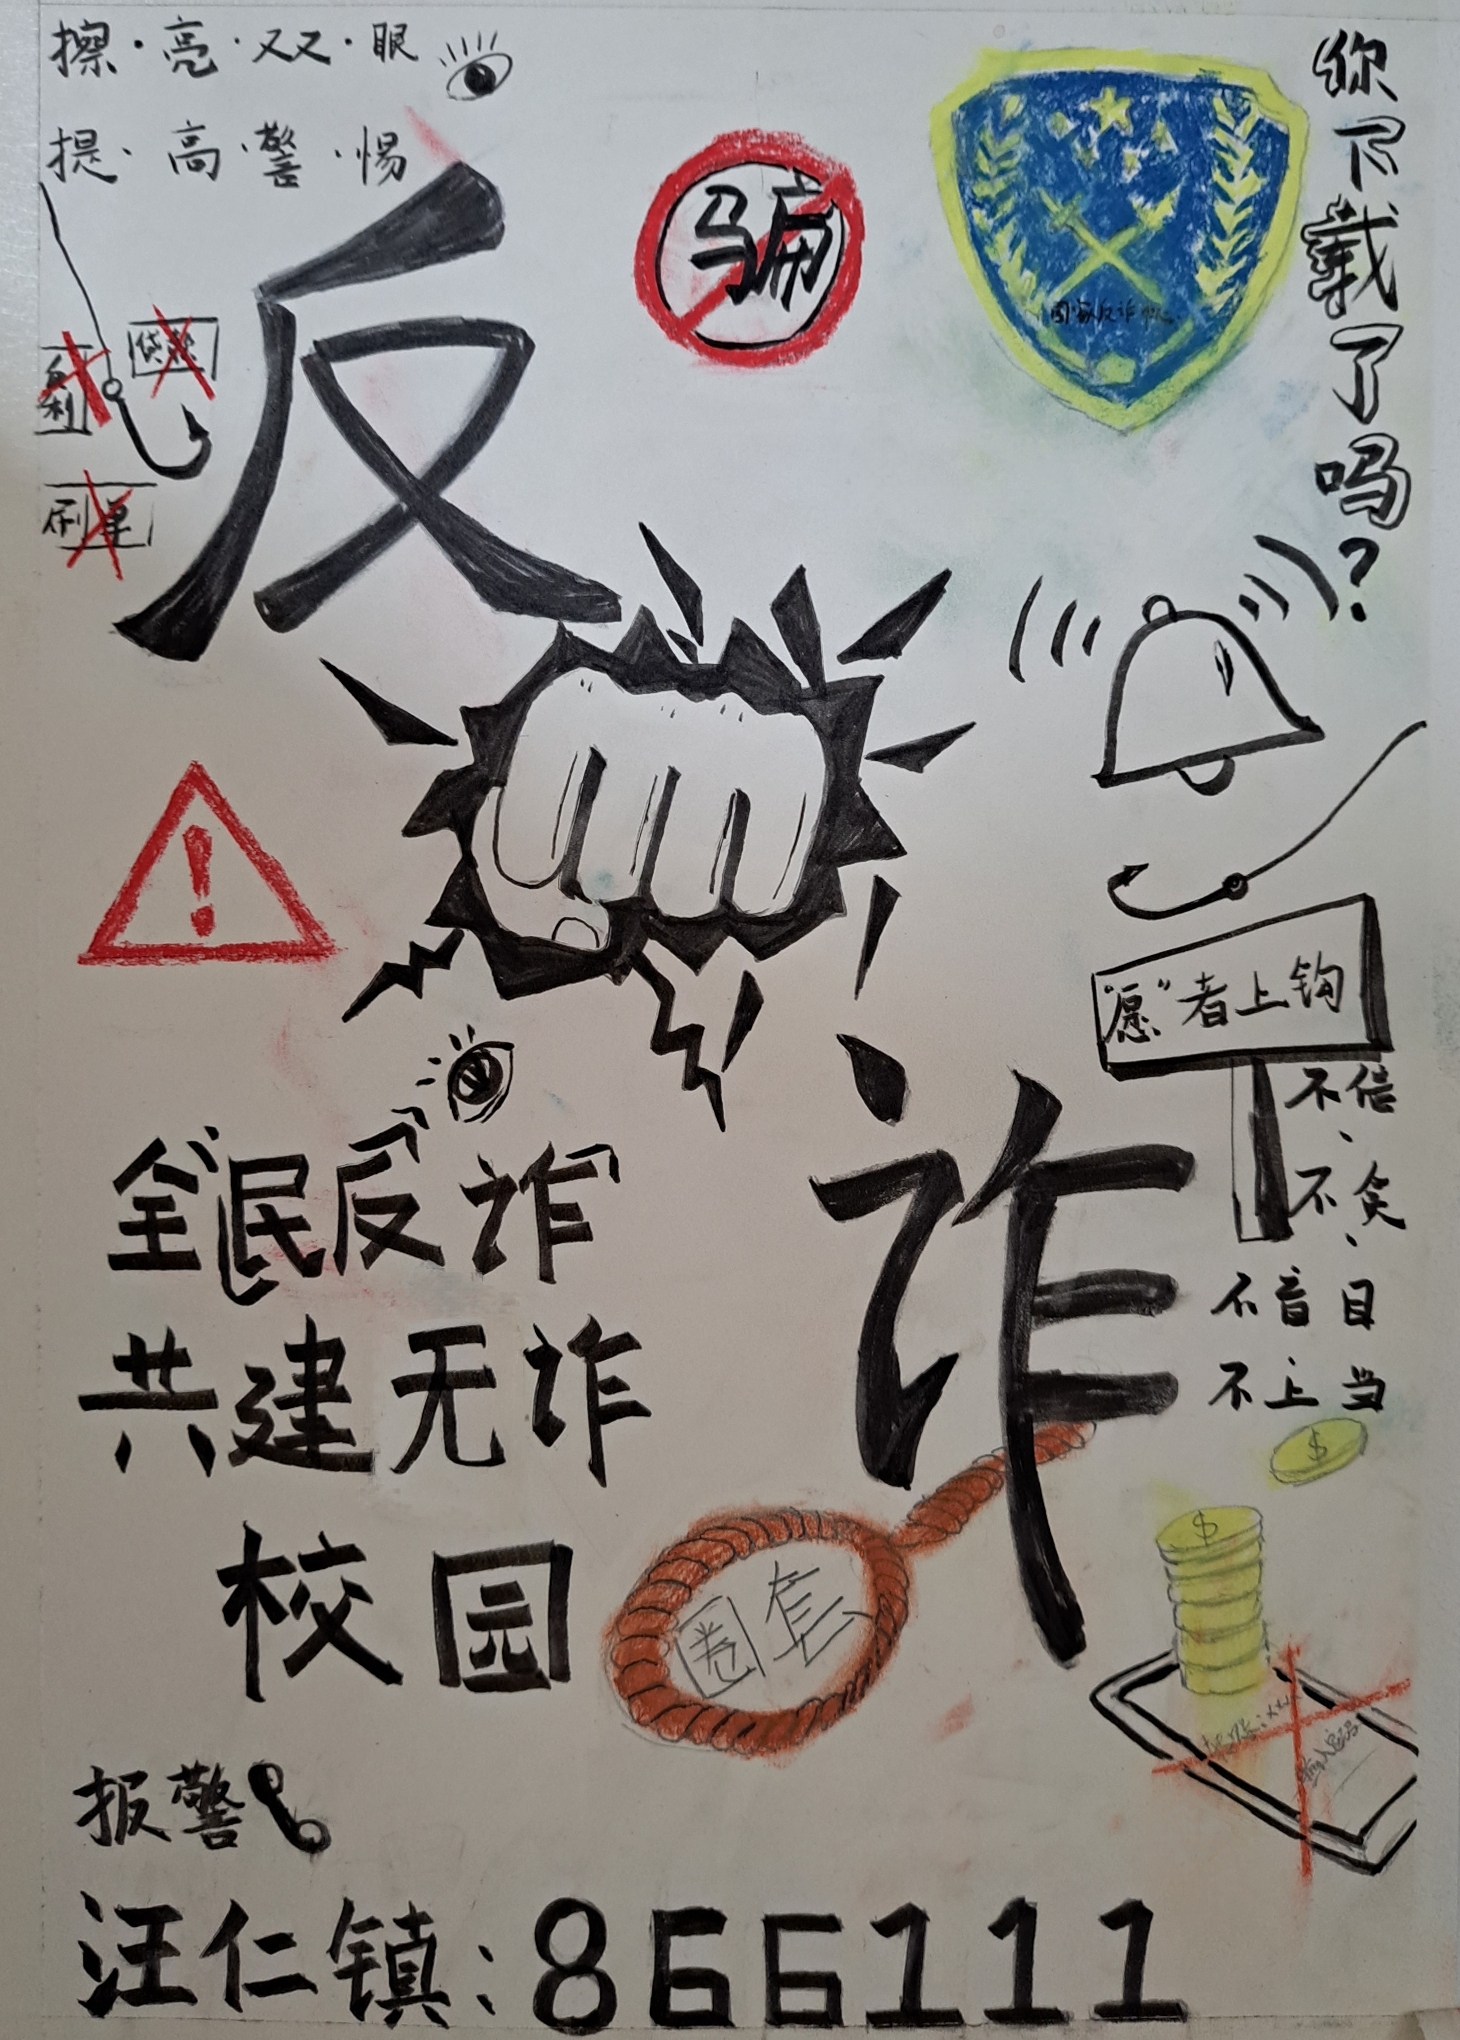 擦·亮·双·眼
提·高·警·惕
反
骗
国家反诈中心
你下载了吗？
刷单
"愿"者上钩
不信、
不贪、
不盲目
不上当
诈
全民反诈
共建无诈
校园
圈套
$
$
报警
汪仁镇：866111